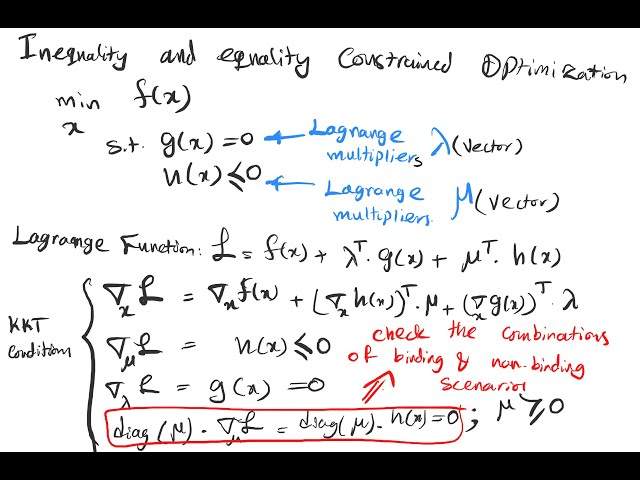 Inequality and equality Constrained Optimization
min f(x)
x
s.t. g(x) = 0 ← Lagrange multipliers λ (vector)
h(x) ≤ 0 ← Lagrange multipliers μ (vector)
Lagrange Function: ℒ = f(x) + λᵀ. g(x) + μᵀ. h(x)
KKT Conditions
∇ₓℒ = ∇ₓf(x) + (∇ₓh(x))ᵀ. μ + (∇ₓg(x))ᵀ. λ
∇μℒ = h(x) ≤ 0
∇λℒ = g(x) = 0
diag(μ) . ∇μℒ = diag(μ) . h(x) = 0 ; μ ≥ 0
check the combinations
of binding & non-binding
scenarios